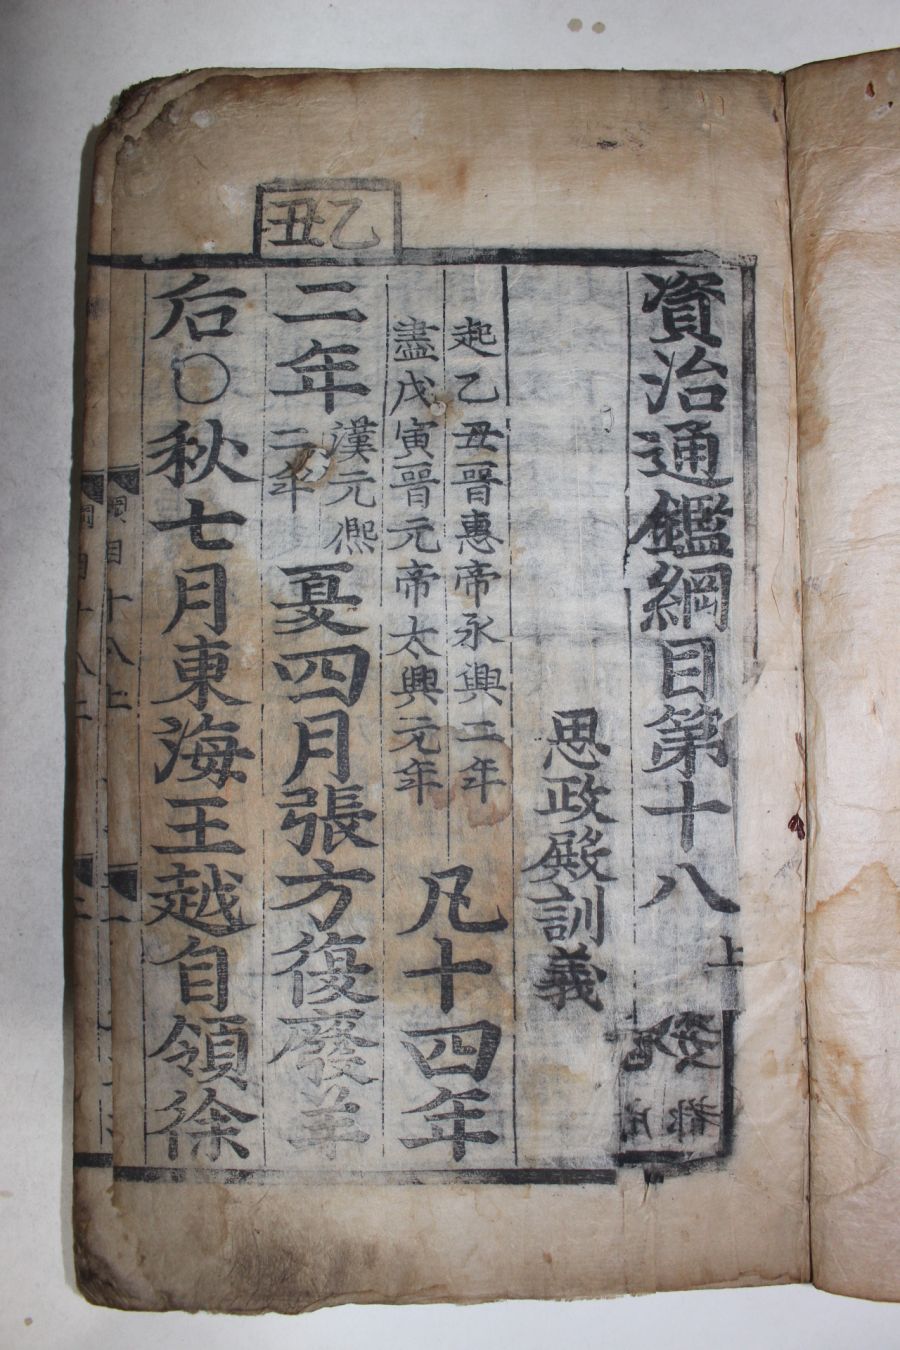 資治通鑑綱目第十八上
思政殿訓義
起乙丑晉惠帝永興二年
盡戊寅晉元帝太興元年
凡十四年
乙丑
二年
漢元熈
二年
夏四月張方復廢羊
后○秋七月東海王越自領徐
綱目十八上